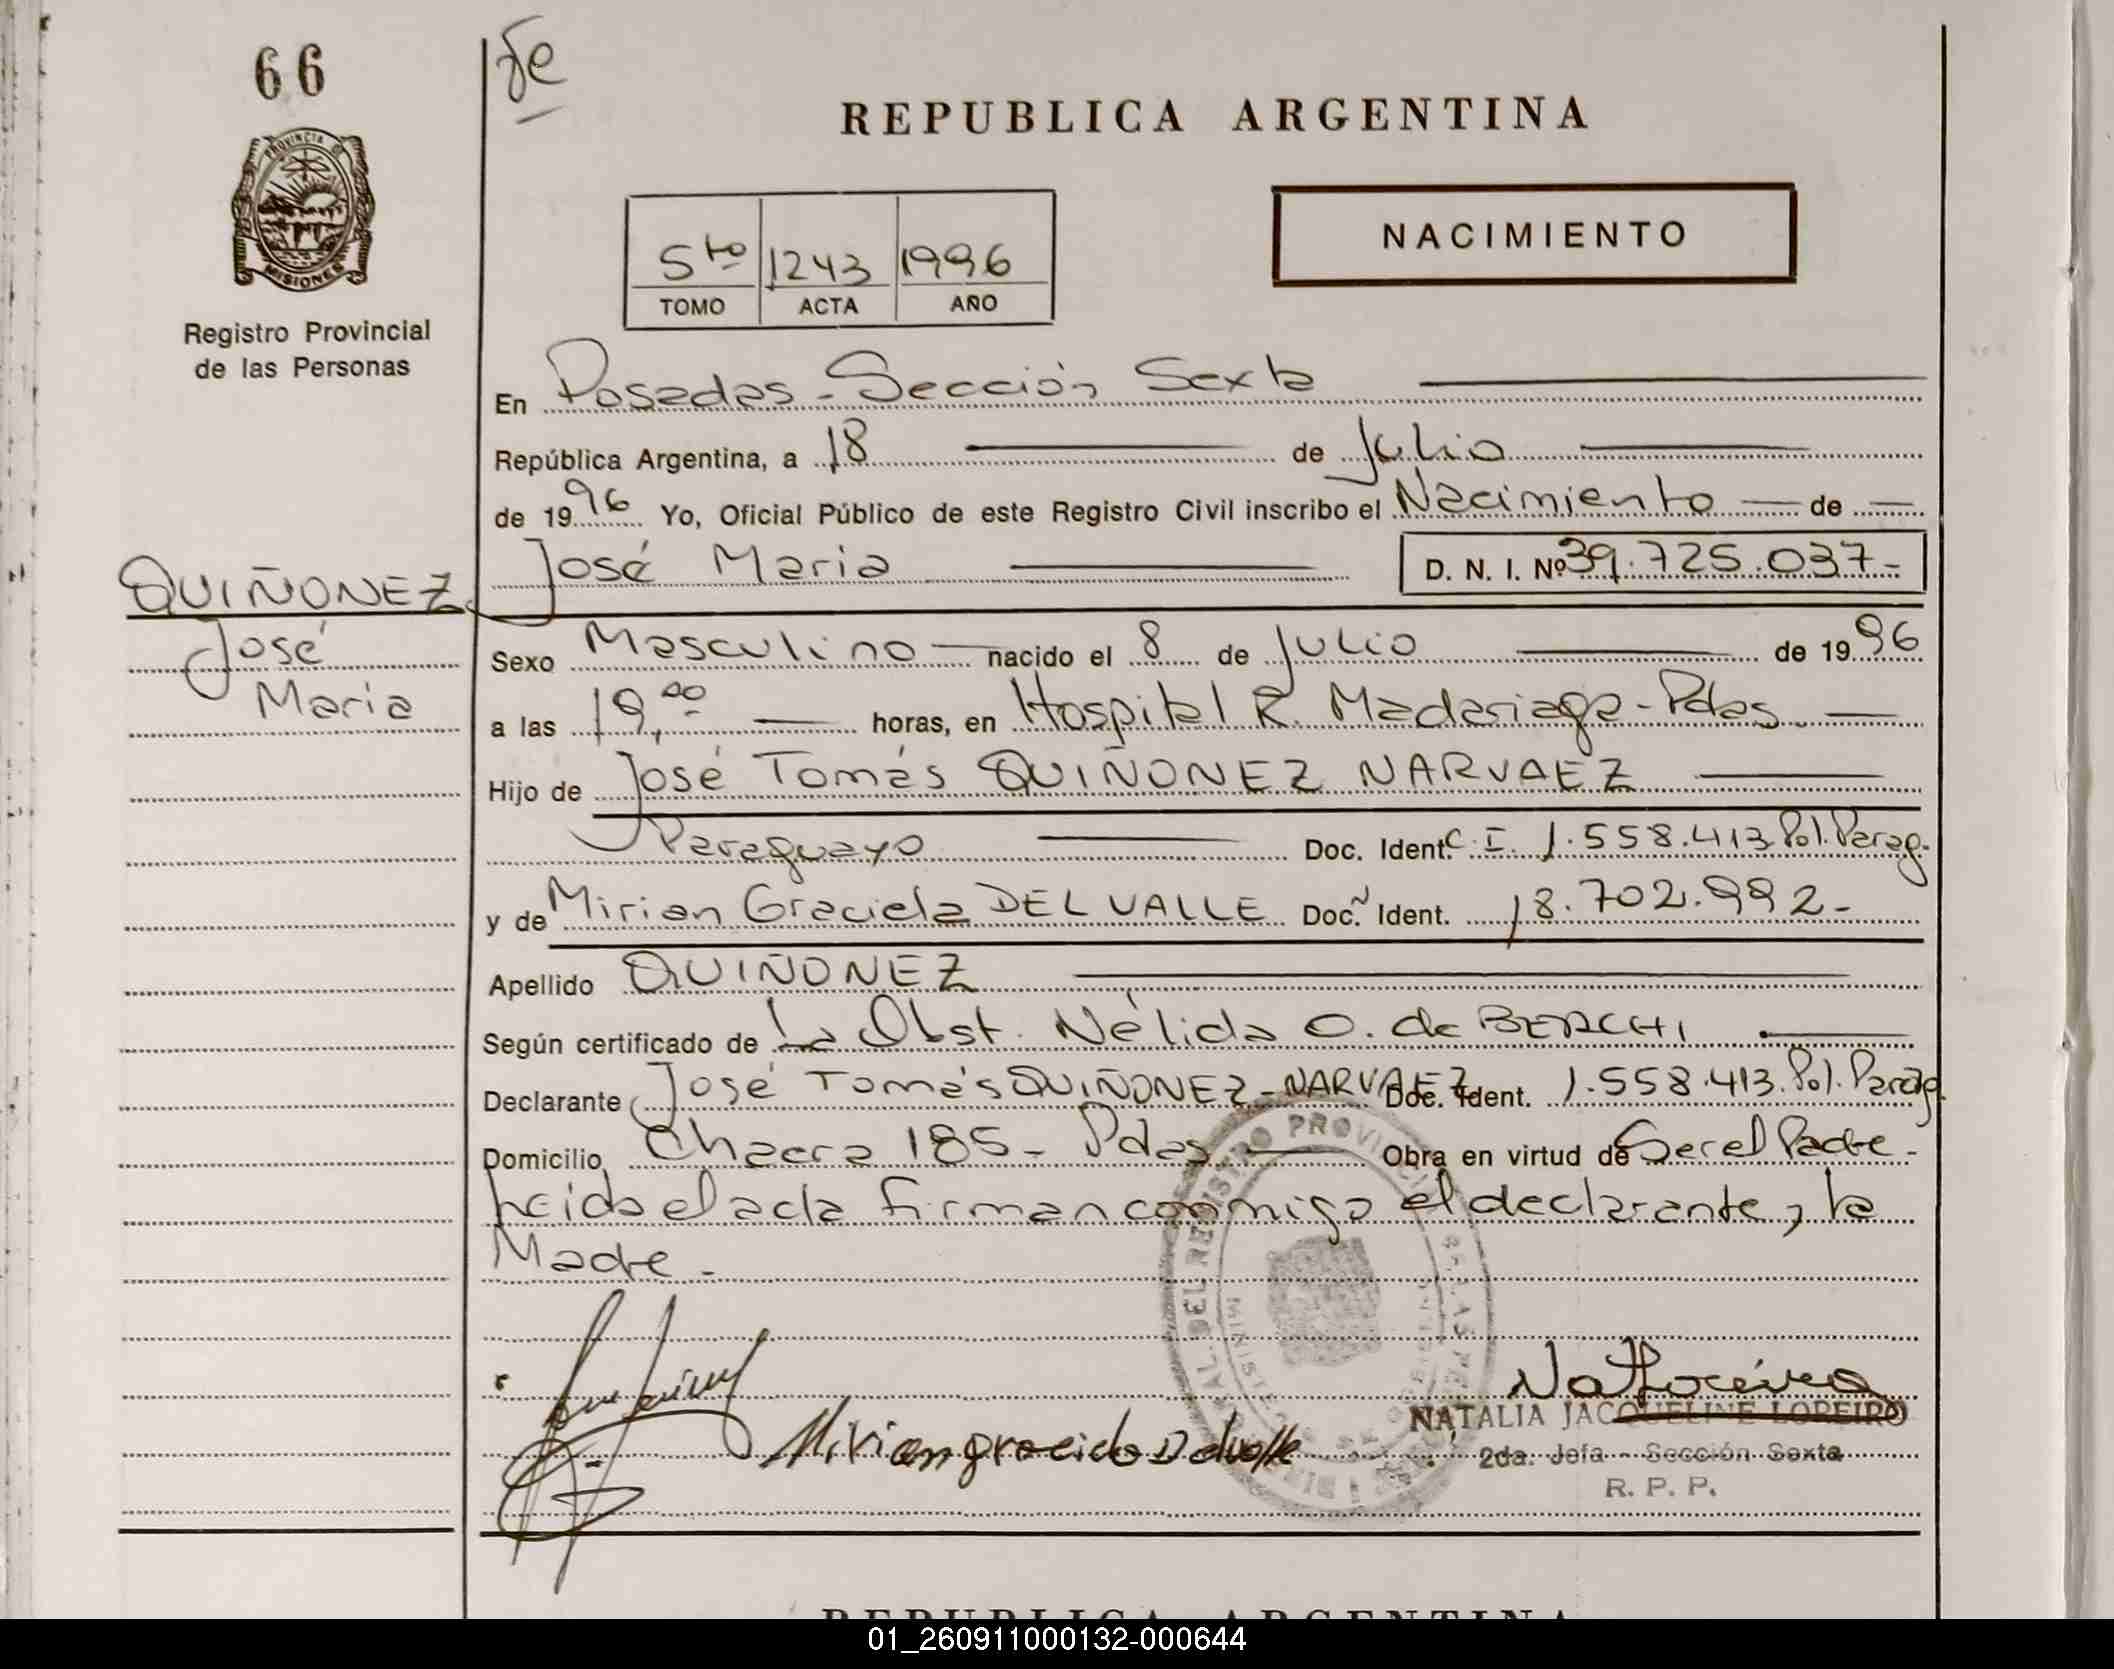 66
fe
REPUBLICA ARGENTINA
PROVINCIA D
MISIONES
Registro Provincial
de las Personas
5to 1243 1996
TOMO ACTA AÑO
NACIMIENTO
En Posadas - Sección Sexta
República Argentina, a 18 de Julio
de 1996 Yo, Oficial Público de este Registro Civil inscribo el Nacimiento de
José Maria D. N. I. Nº 39.725.037-
QUIÑONEZ
José
Maria
Sexo Masculino nacido el 8 de Julio de 1996
a las 19,00 horas, en Hospital R. Madariaga - Pdas
Hijo de José Tomás QUIÑONEZ NARVAEZ
Paraguayo Doc. Ident. C. I. 1.558.413 Pol. Parag.
y de Mirian Graciela DEL VALLE Doc. Ident. 18.702.992-
Apellido QUIÑONEZ
Según certificado de La Obst. Nélida O. de BERCHI
Declarante José Tomás QUIÑONEZ - NARVAEZ Doc. Ident. 1.558.413. Pol. Parag.
Domicilio Chacra 185 - Pdas Obra en virtud de Ser el Padre -
Leida el acta firman conmigo el declarante, la
Madre -
Mirian graciela Delvalle
NATALIA JACQUELINE LOREIRO
2da. Jefa - Sección Sexta
R. P. P.
REPUBLICA ARGENTINA
01_260911000132-000644